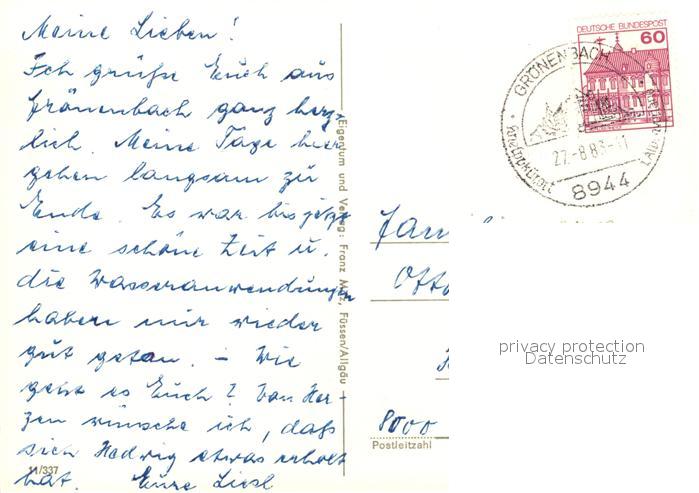 Meine Lieben!
Ich grüße Euch aus
Grönenbach ganz herz-
lich. Meine Tage hier
gehen langsam zu
Ende. Es war bis jetzt
eine schöne Zeit u.
die Wasseranwendungen
haben mir wieder
gut getan. – Wie
geht es Euch? Von Her-
zen wünsche ich, daß
sich Hedwig etwas erholt
hat. Eure Liesl
11/337
Eigentum und Verlag: Franz Milz, Füssen/Allgäu
DEUTSCHE BUNDESPOST
60
GRÖNENBACH
Kneippkurort
27.-8.83-11
8944
Fam
Otto
8000
Postleitzahl
privacy protection
Datenschutz